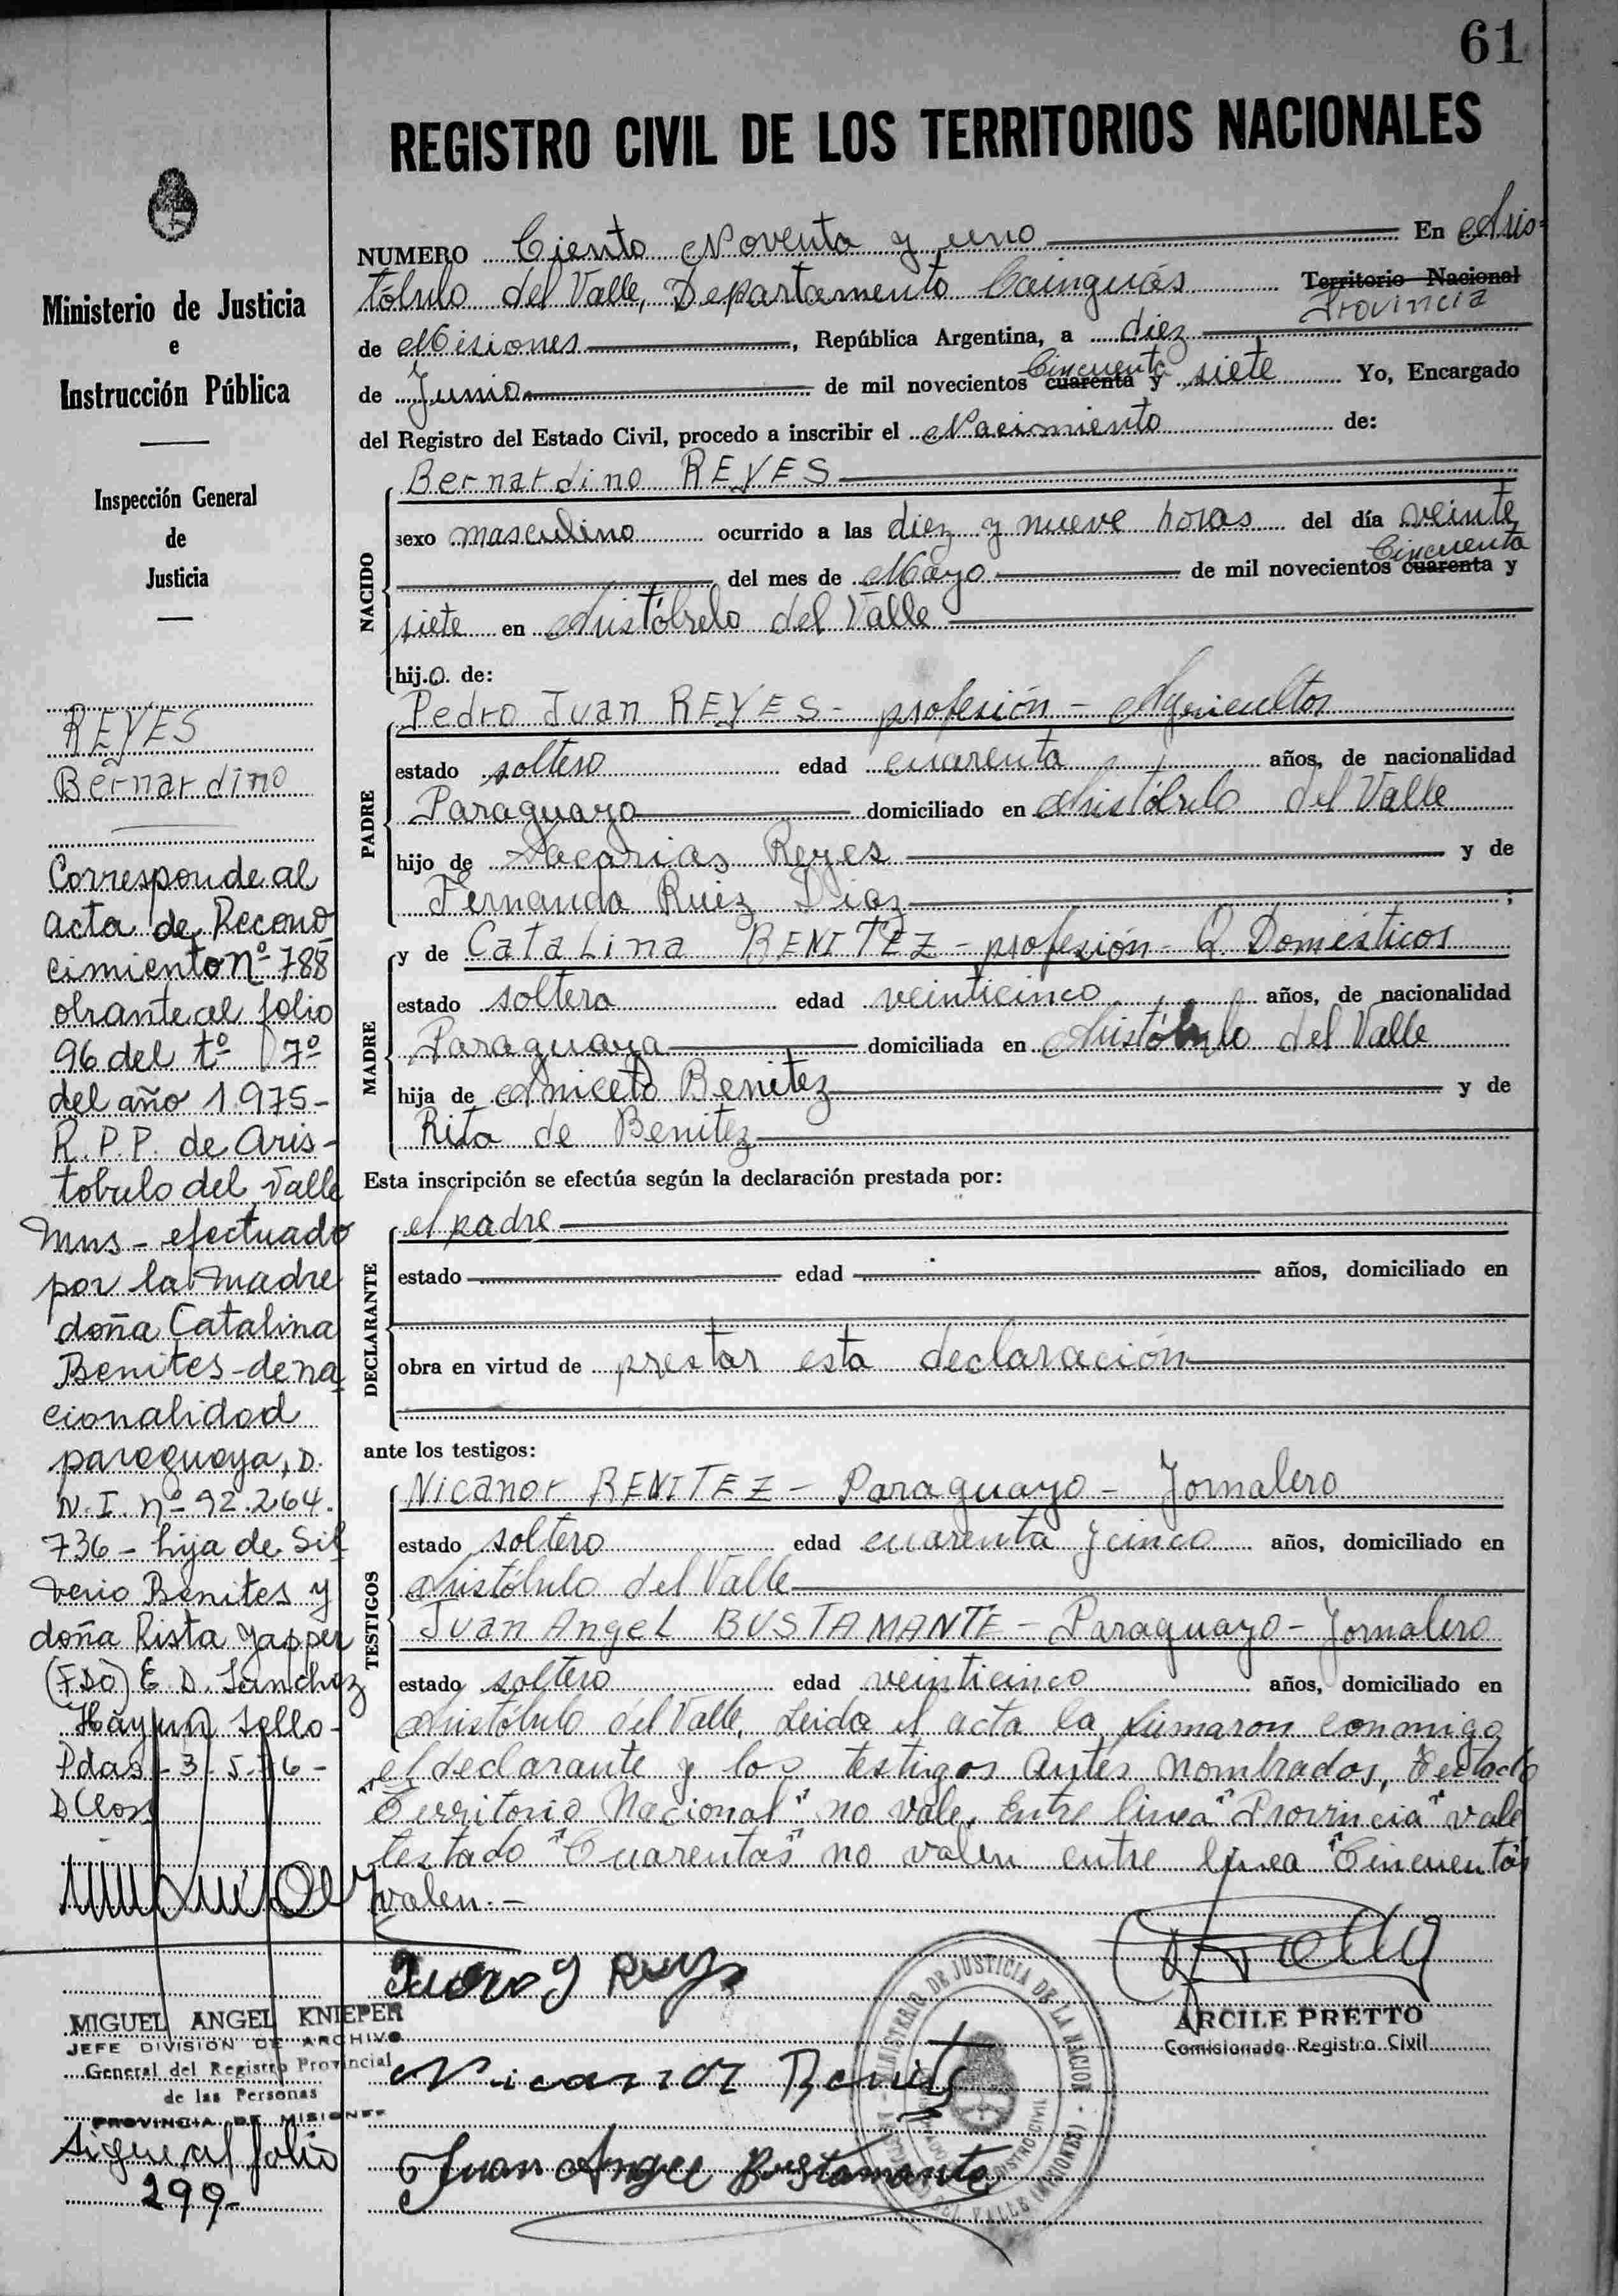 61
REGISTRO CIVIL DE LOS TERRITORIOS NACIONALES
Ministerio de Justicia
e
Instrucción Pública
Inspección General
de
Justicia
NUMERO Ciento Noventa y uno En Aris-
tóbulo del Valle, Departamento Cainguás Territorio Nacional
Provincia
de Misiones, República Argentina, a diez
de Junio de mil novecientos cuarenta y siete Yo, Encargado
Cincuenta
del Registro del Estado Civil, procedo a inscribir el Nacimiento de:
NACIDO
Bernardino REYES
sexo masculino ocurrido a las diez y nueve horas del día veinte
Cincuenta
del mes de Mayo de mil novecientos cuarenta y
siete en Aristóbulo del Valle
hijo de:
PADRE
Pedro Juan REYES - profesión - Agricultor
estado soltero edad cuarenta años, de nacionalidad
Paraguayo domiciliado en Aristóbulo del Valle
hijo de Sacarias Reyes y de
Fernanda Ruiz Diaz ;
MADRE
y de Cataлina BENITEZ - profesión - Q. Domésticos
estado soltera edad veinticinco años, de nacionalidad
Paraguaya domiciliada en Aristóbulo del Valle
hija de Aniceto Benitez y de
Rita de Benitez
Esta inscripción se efectúa según la declaración prestada por:
DECLARANTE
el padre
estado edad años, domiciliado en
obra en virtud de prestar esta declaración
ante los testigos:
TESTIGOS
Nicanor BENITEZ - Paraguayo - Jornalero
estado soltero edad cuarenta y cinco años, domiciliado en
Aristóbulo del Valle
Juan Angel BUSTAMANTE - Paraguayo - Jornalero
estado soltero edad veinticinco años, domiciliado en
Aristóbulo del Valle, Leida el acta la firmaron conmigo
el declarante y los testigos antes nombrados, Testado
"Territorio Nacional" no vale, Entre linea "Provincia" vale
testado "Cuarentas" no valen entre linea "Cincuentas"
valen.-
Nicanor Benitez
Juan Angel Bustamante
ARCILE PRETTO
Comisionado Registro Civil
MINISTERIO DE JUSTICIA DE LA NACION
REGISTRO CIVIL
DEL VALLE (MISIONES)
REYES
Bernardino
Corresponde al
acta de Recono
cimiento nº 788
obrante al folio
96 del tº 7º
del año 1.975-
R.P.P. de Aris-
tobulo del Valle
Mns - efectuado
por la madre
doña Catalina
Benites - de na
cionalidad
paraguaya, D.
N.I. nº 92.264.
736 - hija de Sil
verio Benites y
doña Rista Yapper
(FDO) E. D. Sanchez
Hay un sello-
Pdas - 3 - 5 - 76 -
MIGUEL ANGEL KNIEPER
JEFE DIVISION DE ARCHIVO
General del Registro Provincial
de las Personas
PROVINCIA DE MISIONES
Sigue al folio
299-